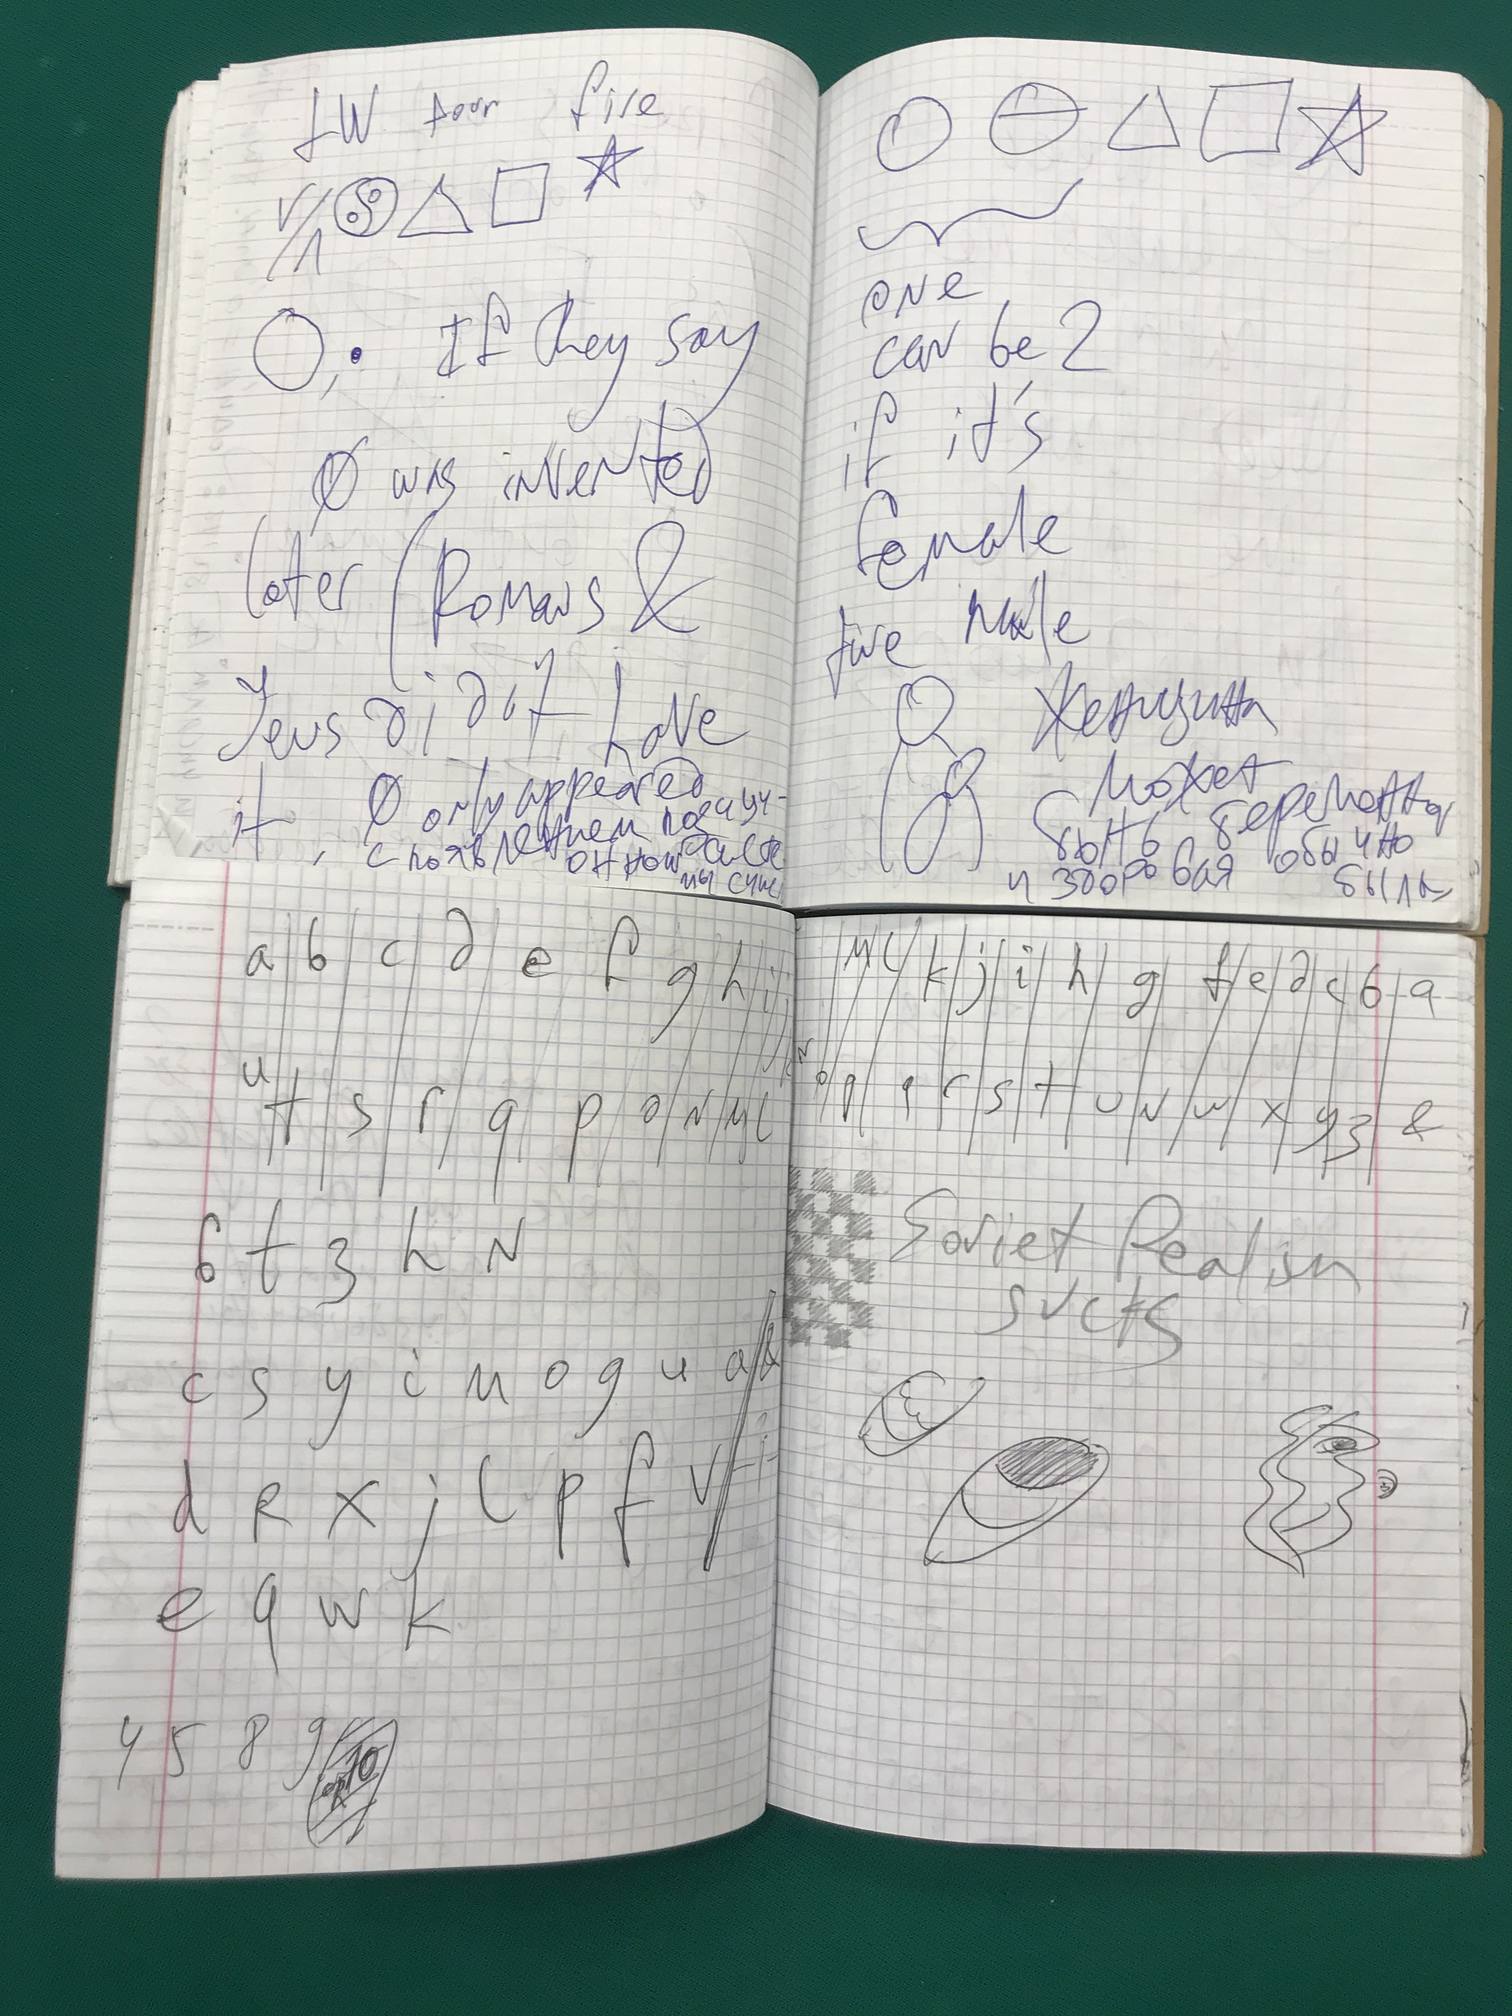 fire
If they say
Ø was invented
later (Romans &
Jews did't Love
it, Ø only appeared
с появлением
one
can be 2
if it's
female
male
Женщина
может
быть беременная
и здоровая обычно
a b c d e f g h i j
u t s r q p o n m l
б t з h N
c s y i m o g u a &
d R x j l p f v
e q w k
4 5 8 9
m l k j i h g f e d c b a
o p q r s t u v w x y z &
Soviet Realism
sucks